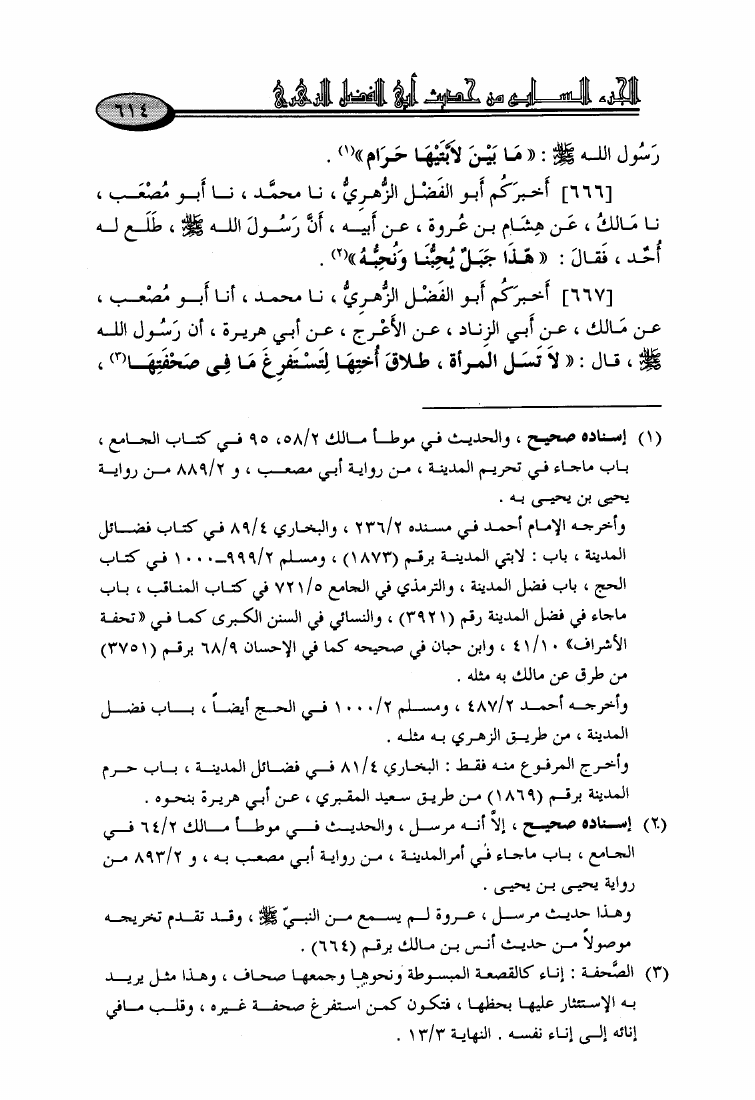 الجزء السابع من حديث أبي الفضل الزهري
٦١٤
رَسُول اللـه ﷺ : « مَـا بَيْـنَ لاَبَتَيْهَـا حَـرَام »(١) .
[٦٦٦] أَخبرَكُم أبو الفَضْل الزهْرِيُّ ، نـا محمَّد ، نـا أبـو مُصْعَـب ،
نـا مَـالكُ ، عَـن هِشَـام بـن عُـروة ، عـن أَبيـه ، أَنَّ رَسُـولَ اللـه ﷺ ، طَلَـع لـه
أُحُد ، فَقـالَ : « هَـذَا جَبَـلٌ يُحِبُّنَـا وَنُحِبُّـهُ »(٢) .
[٦٦٧] أَخبـرَكُم أبو الفَضْـل الزُهْـرِيُّ ، نـا محمـد ، أنـا أبـو مُصْعَـب ،
عـن مَـالك ، عَـن أبي الزناد ، عـن الأَعْرج ، عـن أبي هريـرة ، أن رَسُول اللـه
ﷺ ، قـال : « لاَ تَسَـل المـرأة ، طـلاقَ أُختِهَـا لِتَسْتَفرِغَ مَـا فِـى صَحْفَتِهَــا(٣) ،
(١) إسـناده صحيـح ، والحديـث في موطـأ مـالك ٥٨/٢، ٩٥ فـي كتـاب الجـامع ،
بـاب مـاجـاء في تحريم المدينـة ، مـن روايـة أبـي مصعـب ، و ٨٨٩/٢ مـن روايـة
يحيى بن يحيـى به .
وأخرجـه الإمـام أحمـد فـي مسـنده ٢٣٦/٢ ، والبخـاري ٨٩/٤ فـي كتـاب فضـائل
المدينـة ، باب : لابتي المدينـة برقـم (١٨٧٣) ، ومسـلم ٩٩٩/٢ــ١٠٠٠ فـي كتـاب
الحج ، باب فضل المدينة ، والترمذي في الجامع ٧٢١/٥ في كتـاب المناقـب ، بـاب
ماجاء في فضل المدينة رقم (٣٩٢١) ، والنسائي في السنن الكبرى كمـا فـي « تحفـة
الأشراف» ٤١/١٠ ، وابن حبان في صحيحه كما في الإحسان ٦٨/٩ برقـم (٣٧٥١)
من طرق عن مالك به مثله .
وأخرجـه أحمـد ٤٨٧/٢ ، ومسـلم ١٠٠٠/٢ فـي الحـج أيضـاً ، بـاب فضـل
المدينة ، من طريـق الزهـري بـه مثلـه .
وأخـرج المرفـوع منـه فقـط : البخـاري ٨١/٤ فـي فضـائل المدينـة ، بـاب حـرم
المدينة برقـم (١٨٦٩) مـن طريق سعيد المقبري ، عن أبي هريرة بنحوه .
(٢) إسـناده صحيـح ، إلاَّ أنـه مرسـل ، والحديـث فـي موطـأ مـالك ٦٤/٢ فـي
الجامع ، بـاب ماجـاء في أمرالمدينـة ، مـن روايـة أبـي مصعـب بـه ، و ٨٩٣/٢ مـن
رواية يحيـى بـن يحيـى .
وهـذا حديـث مرسـل ، عـروة لـم يسـمع مـن النبـيّ ﷺ ، وقـد تقـدم تخريجـه
موصولاً مـن حديـث أنـس بـن مـالك برقـم (٦٦٤) .
(٣) الصَّحفـة : إنـاء كالقصعـة المبسـوطة ونحوهـا وجمعهـا صحـاف ، وهـذا مثـل يريـد
بـه الإستئثار عليها بحظهـا ، فتكـون كمـن استفرغ صحفـة غيـره ، وقلـب مـافي
إنائه إلـى إنـاء نفسـه . النهايـة ١٣/٣ .